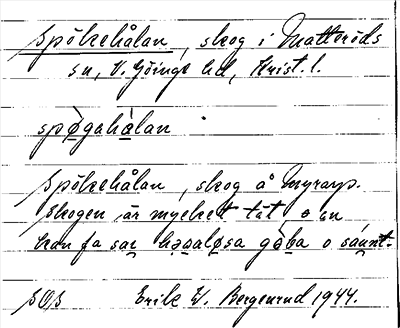 Spökehålan, skog i Matteröds
sn, V. Göinge hd, Krist. l.
spø̀gahålan
Spökehålan, skog å Myrarp.
Skogen är mycket tät, o an
kan fa sar həəaløsa gàba o sánnt.
SOS Erik W. Bergenrud 1944.